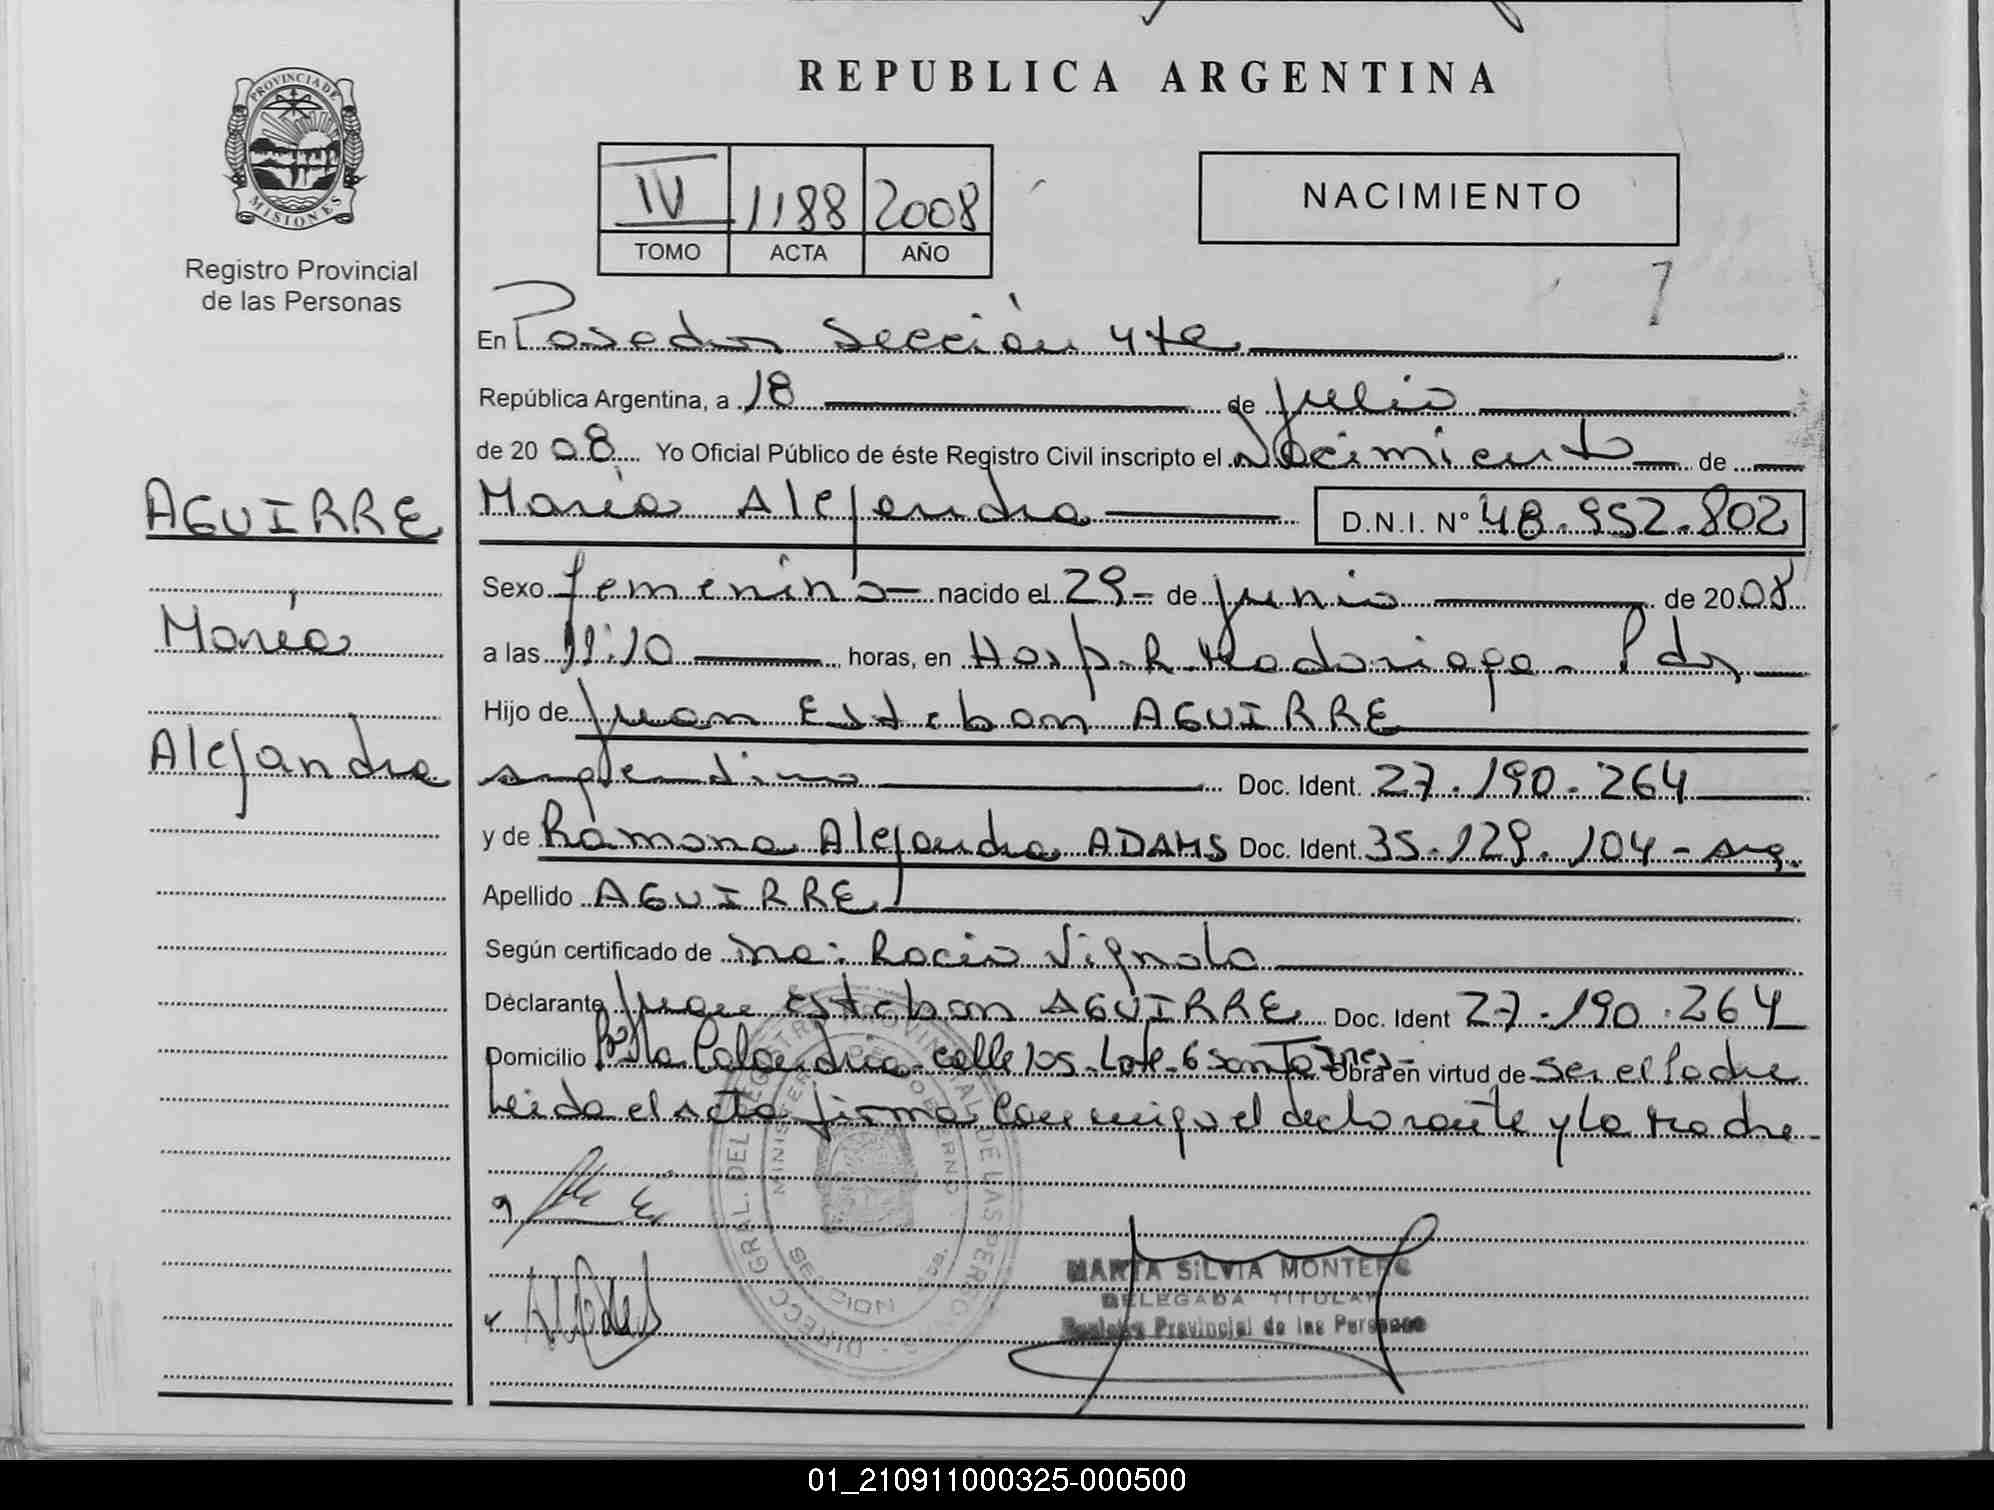 REPUBLICA ARGENTINA
PROVINCIA DE
MISIONES
Registro Provincial
de las Personas
IV 1188 2008
TOMO ACTA AÑO
NACIMIENTO
En Posadas Sección 4ta
República Argentina, a 18 de julio
de 2008. Yo Oficial Público de éste Registro Civil inscripto el Nacimiento de
AGUIRRE
María
Alejandra
María Alejandra D.N.I. Nº 48.952.802
Sexo femenino nacido el 29 de junio de 2008
a las 11:10 horas, en Hosp. R. Madariaga - Pdas
Hijo de Juan Esteban AGUIRRE
argentino Doc. Ident. 27.190.264
y de Ramona Alejandra ADAMS Doc. Ident. 35.129.104 - arg.
Apellido AGUIRRE
Según certificado de Rocío Vignola
Declarante Juan Esteban AGUIRRE Doc. Ident 27.190.264
Domicilio calle 105 - Lote - 6 Obra en virtud de ser el Padre
Leída el acta firma conmigo el declarante y la Madre -
DIRECC. GRAL. DEL REGISTRO PROVINCIAL DE LAS PERSONAS
MINISTERIO DE GOBIERNO
MARTA SILVIA MONTERO
DELEGADA TITULAR
Registro Provincial de las Personas
01_210911000325-000500